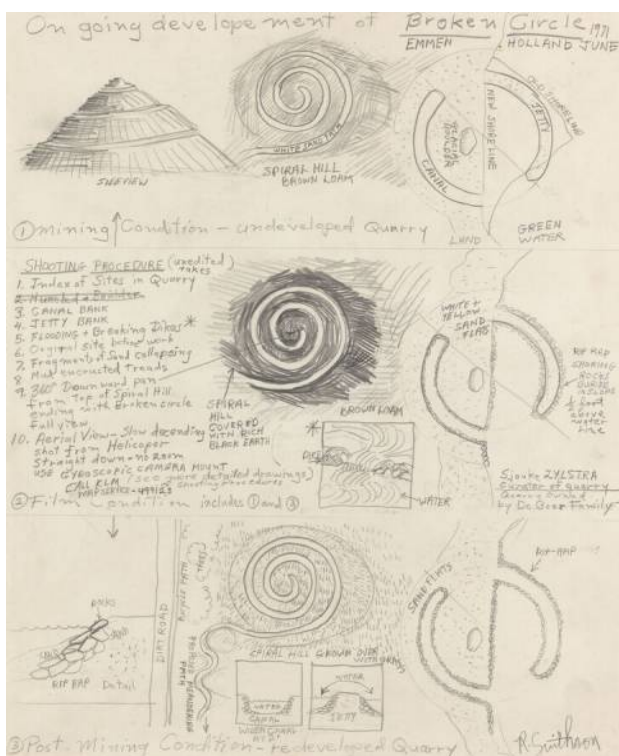 On going developement of Broken Circle 1971
EMMEN HOLLAND JUNE
SIDEVIEW
WHITE SAND PATH
SPIRAL HILL
BROWN LOAM
CANAL
GLACIAL BOULDER
NEW SHORE LINE
JETTY
OLD SHORELINE
LAND
GREEN
WATER
① Mining Condition - undeveloped Quarry
SHOOTING PROCEDURE (unedited takes)
1. Index of Sites in Quarry
3. CANAL BANK
4. JETTY BANK
5. FLOODING & Breaking Dikes *
6. Original site before work
7. Fragments of Sand collapsing
8 Mud encrusted Treads
9. 360° Downward pan
from Top of Spiral Hill
ending with Broken circle
full view
10. Aerial View - Slow descending
shot from Helicopter
straight down - no zoom
USE GYROSCOPIC CAMERA MOUNT
CALL KLM (see more detailed drawings
of shooting procedures)
SPIRAL
HILL
COVERED
WITH RICH
BLACK EARTH
BROWN LOAM
*
WATER
WHITE +
YELLOW
SAND
FLATS
RIP RAP
ROCKS
above
water
line
Sjouke ZYLSTRA
Curator of quarry
Quarry Owned
by De Boer Family
② Film Condition includes ① and ③
ROCKS
SAND
RIP RAP Detail
DIRT ROAD
BICYCLE PATH
(TREES)
MEANDERING
PATH
SPIRAL HILL GROWN OVER
WITH GRASS
WATER
CANAL
WATER
JETTY
SAND FLATS
RIP-RAP
③ Post-Mining Condition - redeveloped Quarry
R. Smithson